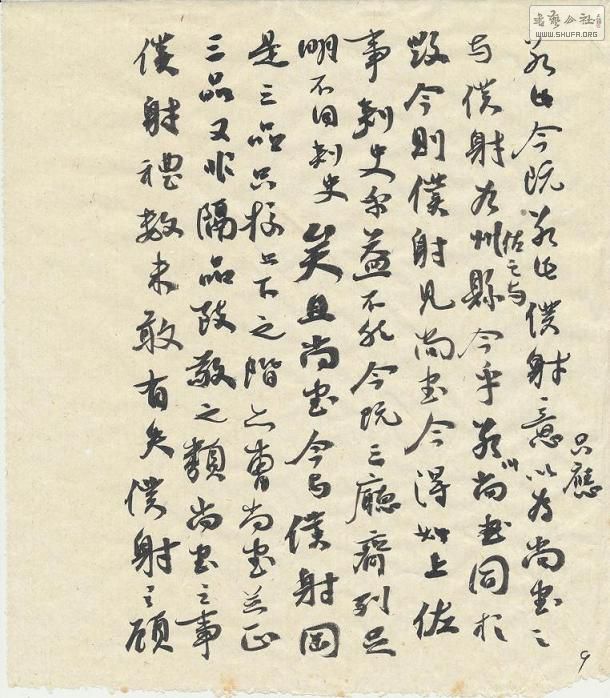 只應
若此今既若此僕射意以為尚書之
佐之与
与僕射若州縣令乎若以尚書同於
縣令則僕射見尚書令得如上佐
事刺史乎益不然今既三廳齊列足
明不同刺史矣且尚書令与僕射同
是三品只校上下之階六曹尚書並正
三品又非隔品致敬之類尚書之事
僕射禮數未敢有失僕射之顧
9
WWW.SHUFA.ORG